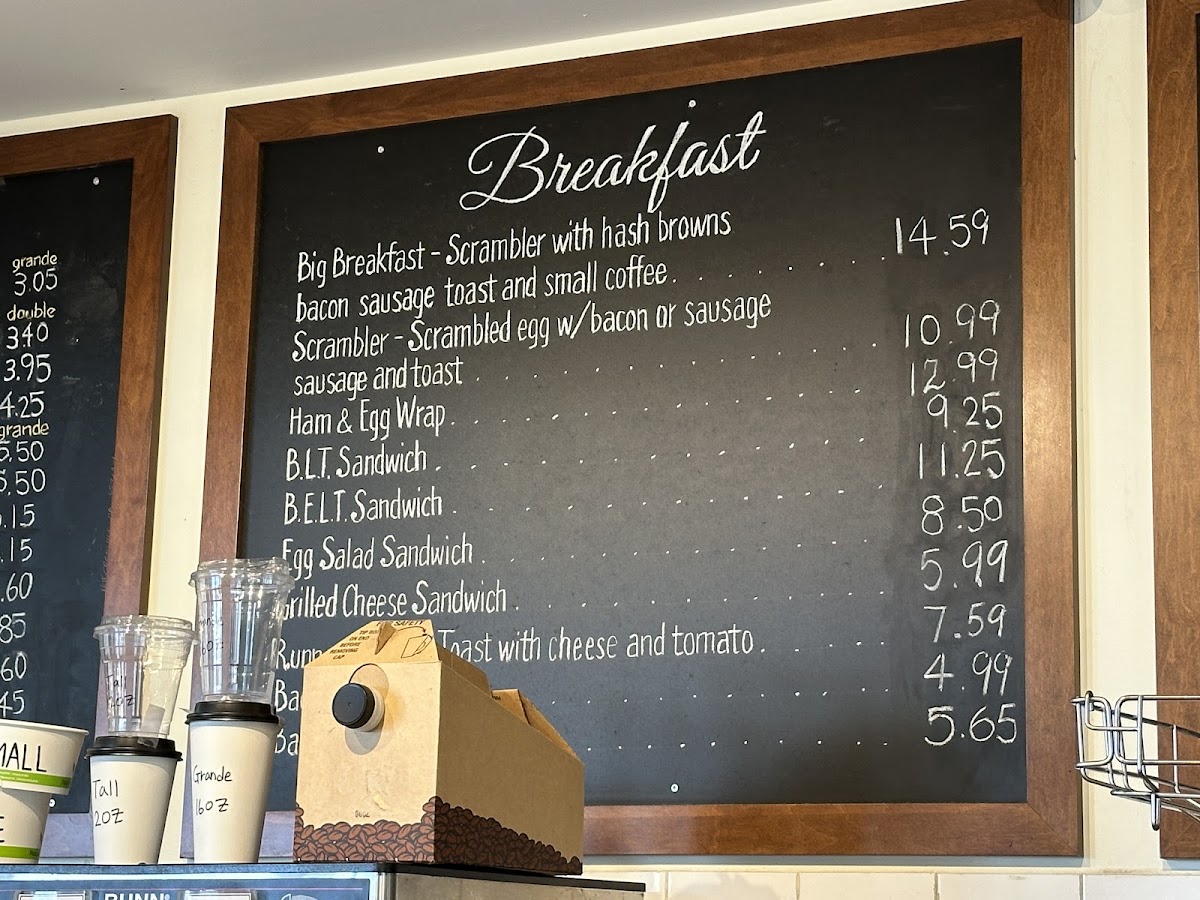 grande
3.05
double
3.40
3.95
4.25
grande
5.50
5.50
.15
.15
.60
85
60
45
Breakfast
Big Breakfast - Scrambler with hash browns
bacon sausage toast and small coffee. 14.59
Scrambler - Scrambled egg w/bacon or sausage
sausage and toast 10.99
Ham & Egg Wrap. 12.99
B.L.T. Sandwich 9.25
B.E.L.T. Sandwich 11.25
Egg Salad Sandwich 8.50
Grilled Cheese Sandwich 5.99
Toast with cheese and tomato. 7.59
4.99
5.65
TIP BOX
ON END
BEFORE
REMOVING
CAP
MALL
Tall
2OZ
Grande
16OZ
BUNN